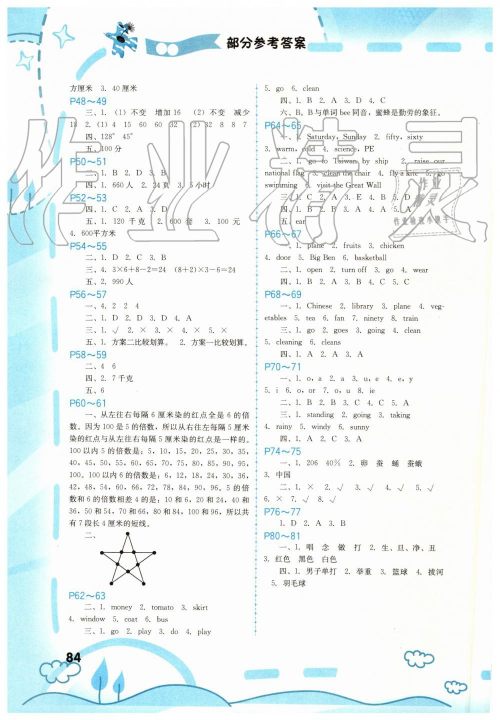 部分参考答案
方厘米 3. 40厘米
P48～49
三、1. (1) 不变 增加16 (2) 不变 减少
18 2. (1) 4 15 60 60 32 (2) 32 8 8 7
四、128° 45°
五、100分
P50～51
二、1. B 2. D 3. B
四、1. 660人 2. 34页 3. 5小时
P52～53
二、1. C 2. D 3. A 4. D
五、1. 120千克 2. 600套 3. 100元
4. 600平方米
P54～55
二、1. D 2. C 3. B
三、4. 3×6+8−2=24 (8+2)×3−6=24
五、2. 990人
P56～57
一、4. 2 2 4
二、1. D 2. D 3. D 4. A
三、1. √ 2. × 3. × 4. × 5. ×
五、1. 方案二比较划算。 2. 方案一比较划算。
P58～59
二、4 6
四、2. 7千克
五、6
P60～61
一、从左往右每隔6厘米染的红点全是6的倍
数。因为100是5的倍数，所以从右往左每隔5厘米
染的红点与从左往右每隔5厘米染的红点是一样的。
100以内5的倍数是：5，10，15，20，25，30，35，
40，45，50，55，60，65，70，75，80，85，90，95，
100。100以内6的倍数是：6，12，18，24，30，36，
42，48，54，60，66，72，78，84，90，96。5的倍
数和6的倍数相差4的是：10和6，20和24，40和
36，50和54，70和66，80和84，100和96，所以共
有7段长4厘米的短线。
二、
P62～63
二、1. money 2. tomato 3. skirt
4. window 5. coat 6. bus
三、1. go 2. play 3. do 4. play
5. go 6. clean
四、1. B 2. A 3. D 4. C
六、B 与单词bee同音，蜜蜂是勤劳的象征。
P64～65
一、1. Saturday, Sunday 2. fifty, sixty
3. warm, cold 4. science, PE
二、1. go to Taiwan by ship 2. raise our
national flag 3. clean the chair 4. fly a kite 5. go
swimming 6. visit the Great Wall
三、1. C 2. A 3. E 4. B 5. D
四、1. A 2. C 3. A 4. C 5. A
五、ear
P66～67
一、1. plane 2. fruits 3. chicken
4. door 5. Big Ben 6. basketball
二、1. open 2. turn off 3. go 4. wear
四、1. B 2. C 3. A 4. D
P68～69
一、1. Chinese 2. library 3. plane 4. veg-
etables 5. tea 6. fan 7. ninety 8. train
三、1. go 2. goes 3. going 4. clean
5. cleaning 6. cleans
四、1. A 2. A 3. A
P70～71
一、1. o, a 2. a, i 3. u, e 4. e, y
5. i 6. o, or 7. o, u 8. ie
二、1. B 2. B 3. C 4. C 5. A
三、1. standing 2. going 3. taking
4. rainy 5. windy 6. sunny
四、1. B 2. A 3. A 4. B 5. A
P74～75
一、1. 206 40% 2. 卵 蚕 蛹 蚕蛾
3. 中国
二、1. × 2. √ 3. √ 4. √ 5. √
6. × 7. √ 8. √
P76～77
1. D 2. A 3. B
P80～81
一、1. 唱 念 做 打 2. 生、旦、净、丑
3. 红色 黑色 白色
四、1. 男子单打 2. 举重 3. 篮球 4. 拔河
5. 羽毛球
84